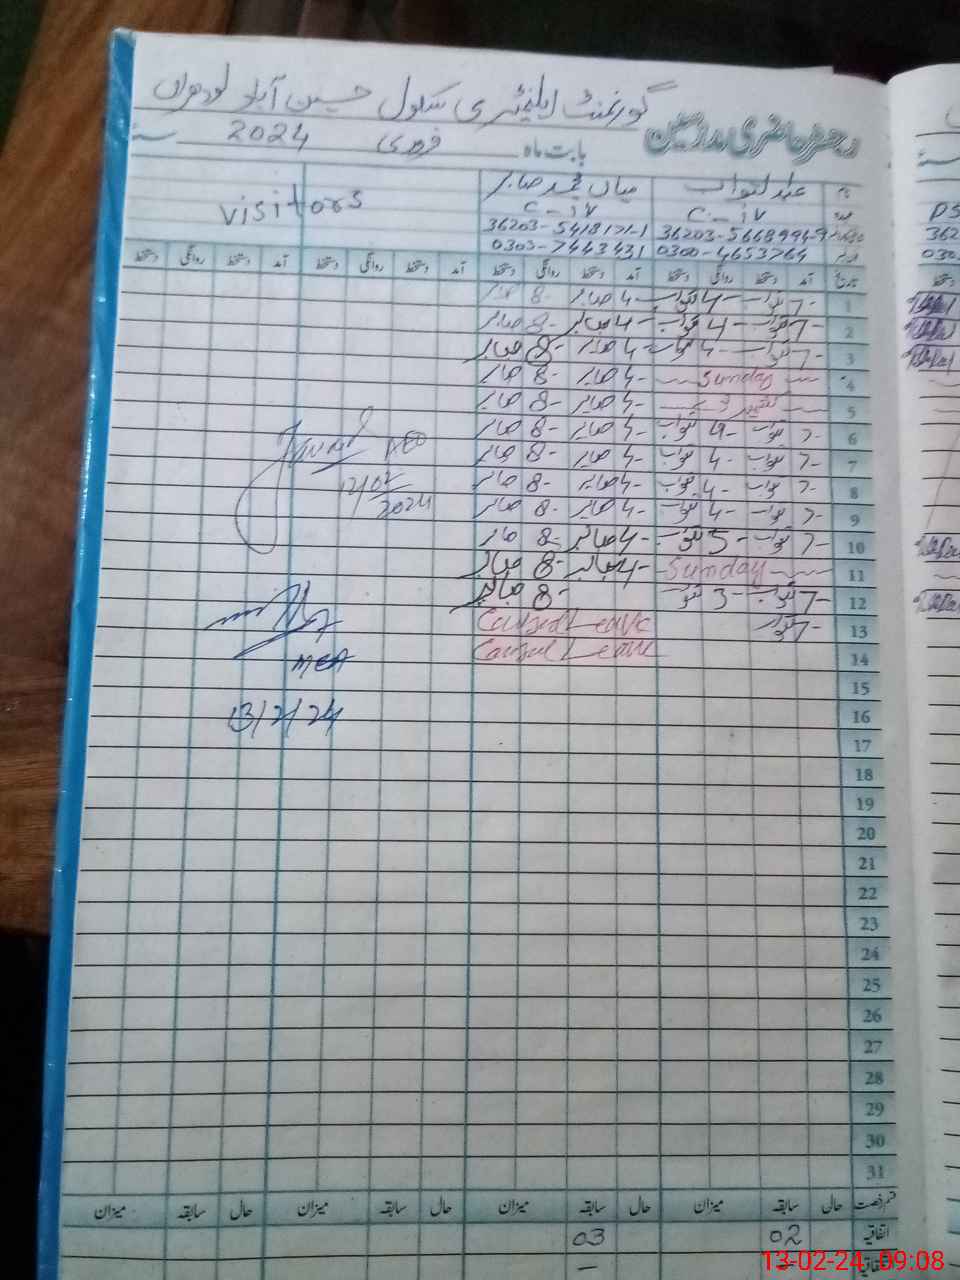 گورنمنٹ ایلیمنٹری سکول حسین آباد لودھراں
رجسٹر حاضری مدرسین
بابت ماہ فروری 2024 سنہ
نام عبدالتواب میاں محمد صابر visitors
C-iv C-iv
36203-5418171-1
0300-4653764 0303-7443431
تاریخ آمد دستخط روانگی دستخط آمد دستخط روانگی دستخط آمد دستخط روانگی دستخط آمد دستخط روانگی دستخط
1 7- تواب 4- تواب 4- صابر 8- صابر
2 7- تواب 4- تواب 4- صابر 8- صابر
3 7- تواب 4- تواب 4- صابر 8- صابر
4 Sunday 4- صابر 8- صابر
5 4- صابر 8- صابر
6 7- تواب 4- تواب 4- صابر 8- صابر
7 7- تواب 4- تواب 4- صابر 8- صابر
8 7- تواب 4- تواب 4- صابر 8- صابر
9 7- تواب 4- تواب 4- صابر 8- صابر
10 7- تواب 5- تواب 4- صابر 8- صابر
11 Sunday 4- صابر 8- صابر
12 7- تواب 3- تواب 8- صابر
13 7- تواب Casual Leave
14 Casual Leave
15
16
17
18
19
20
21
22
23
24
25
26
27
28
29
30
31
AEO
12/02/2024
MEA
13/2/24
قسم رخصت حال سابقہ میزان حال سابقہ میزان حال سابقہ میزان حال سابقہ میزان
اتفاقیہ 02 03
13-02-24 09:08